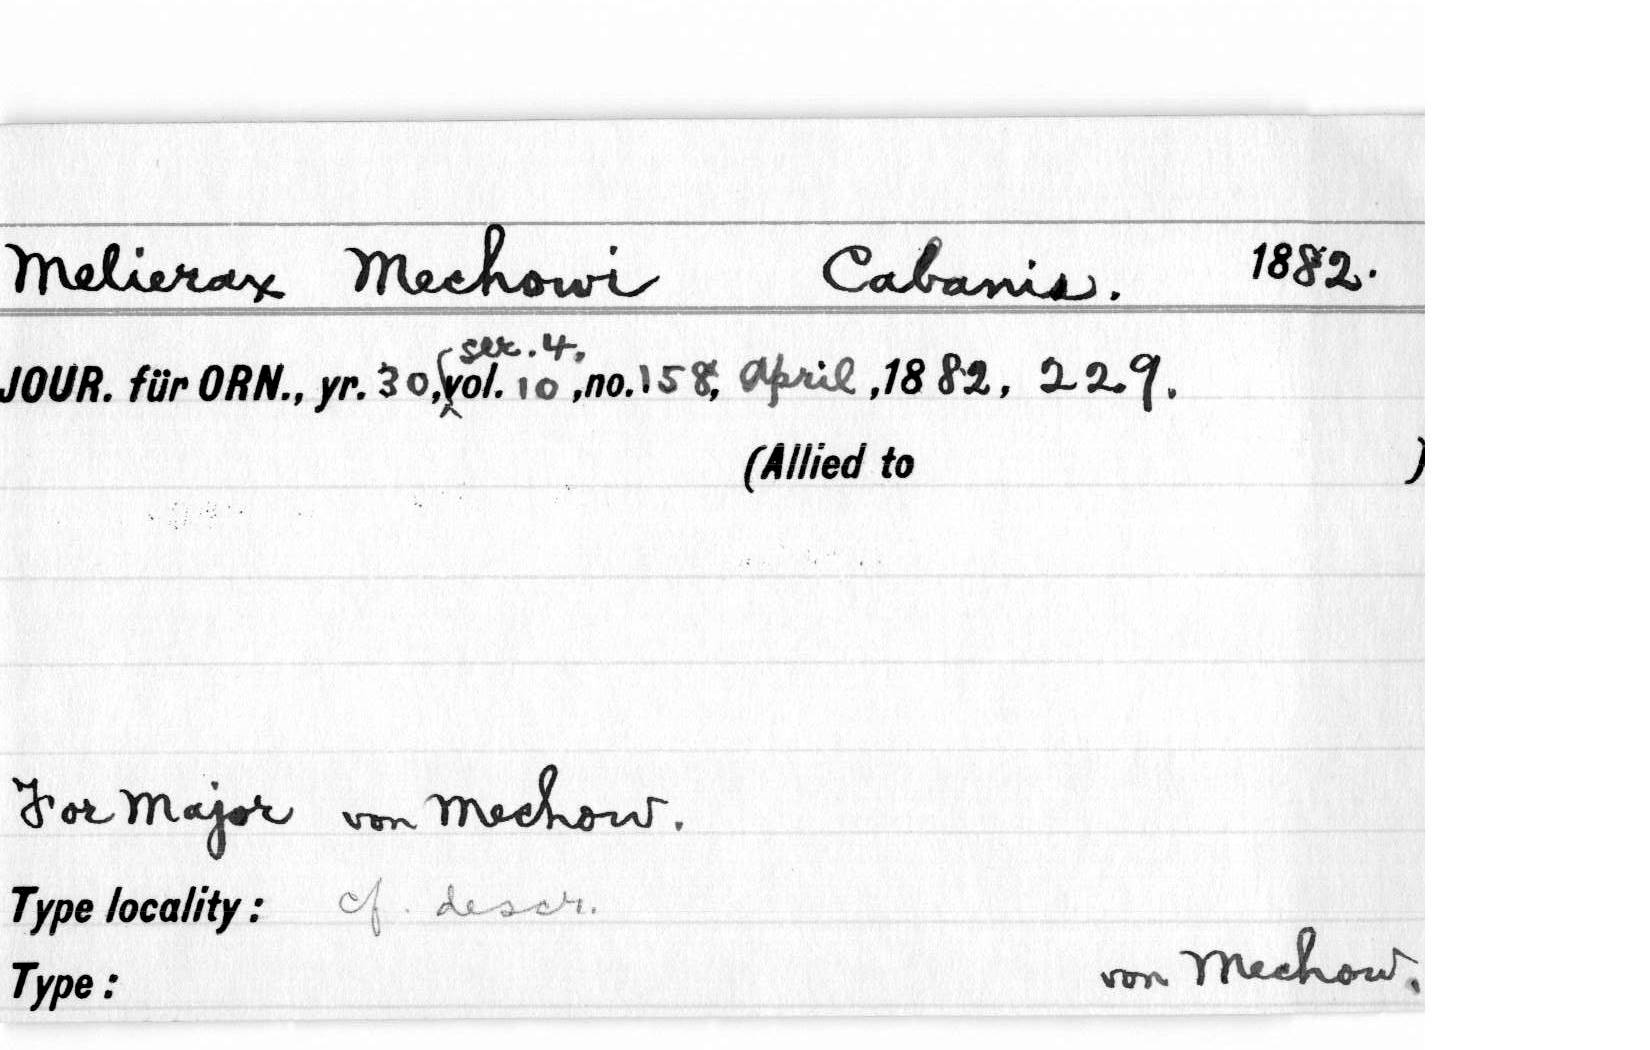 Melierax Mechowi Cabanis. 1882.
JOUR. für ORN., yr. 30, ser. 4, vol. 10, no. 158, April, 1882, 229.
(Allied to )
For Major von Mechow.
Type locality: cf. descr.
Type: von Mechow.